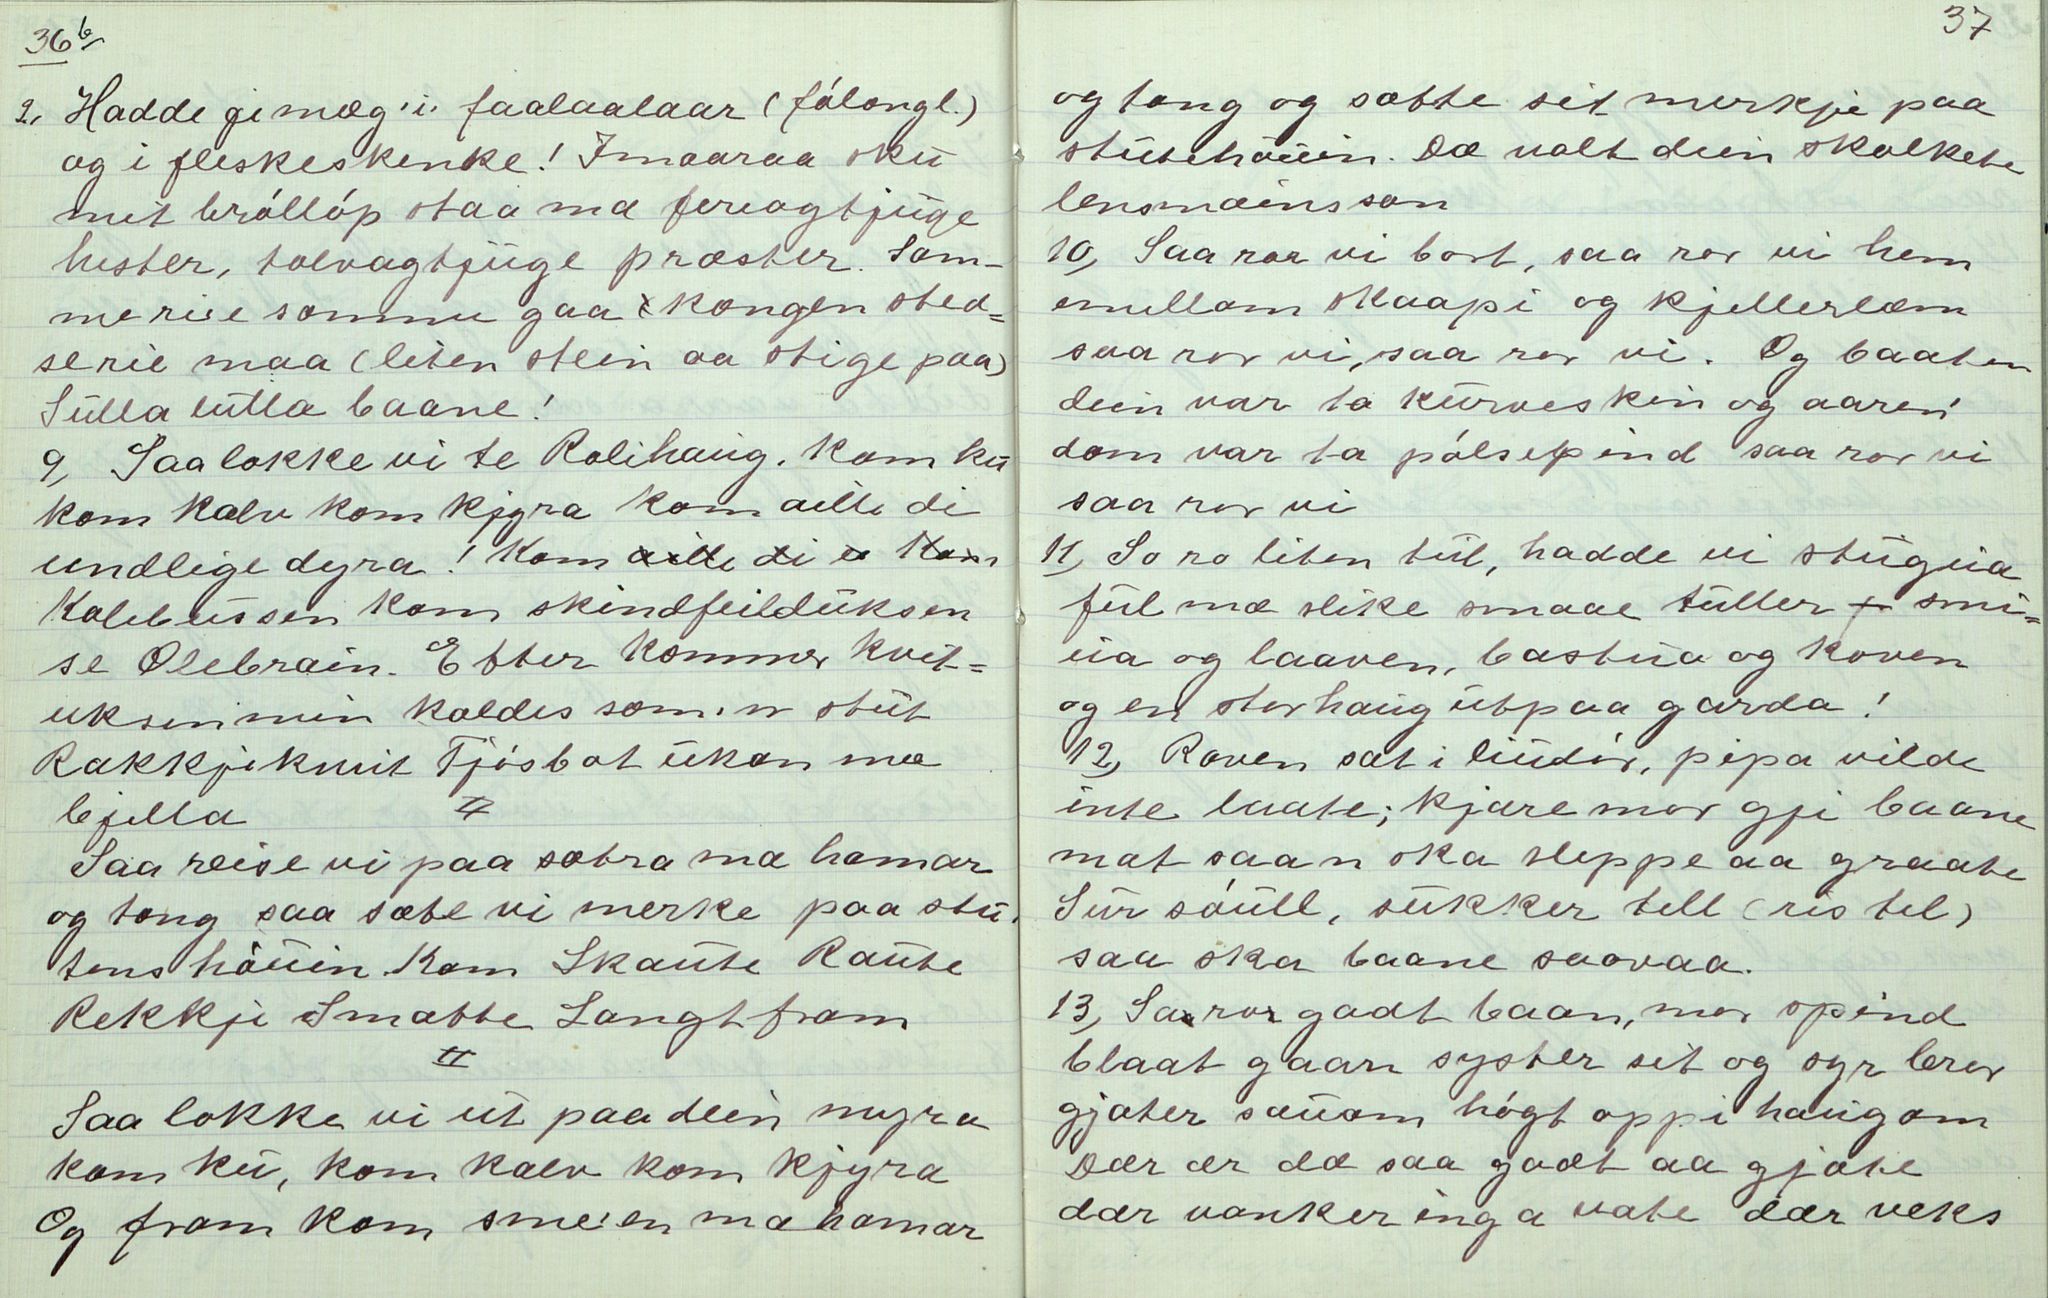 36 b
2, Hadde gi mæg i faalaalaar (fólongl.)
og i fleskeskenke! Imaaraa sku
mit bróllóp staa mæ fireogtjuge
hester, tolvogtjuge præster. Som-
merie sommu gaa kongen sted-
serie maa (liten stein aa stige paa)
Sulla lulla baane!
9, Saa lokke vi te Rolihaug. Kom ku
kom kalv kom kjyra kom aille di
undlige dyra! Kom aille di Kom
Kolbussen kom skindfeilduksen
se Olebrain. Etter kommer kvit-
uksen min koldes som'n stut
Rakkjeknut Fjósbot ukon mæ
bjella
II
Saa reise vi paa sætra mæ hamar
og tong saa sæte vi merke paa stu-
tens hóuin Kom Skaute Raute
Rekkje Smatte Langt fram
II
Saa lokke vi ut paa dein myra
kom ku, kom kalv kom kjyra
Og fram kom smeien mæ hamar
37
og tong og sætte sit merkje paa
stutehóuin. Dæ valt dein skolkete
lensmæins son
10, Saa ror vi bort, saa ror vi hem
emellom skaapi og kjellerlæm
saa ror vi, saa ror vi. Og baaten
dein var ta kurveskin og aaren
dom var ta pólsepind saa ror vi
saa ror vi
11, So ro liten tul, hadde vi stugua
ful mæ slike smaae tuller smi-
ua og laaven, bastua og koven
og en storhaug utpaa garda!
12, Roven sat i liudór, pipa vilde
inte laate; kjære mor gji baane
mat saa n ska sleppe aa graate
Sur sóull, sukker tell (ris til)
saa ska baane saavaa.
13, Sa ror godt baan, mor spind
blaat gaarn syster sit og syr bror
gjæter sauom hógt opp i haugom
Dær ær dæ saa godt aa gjæte
dær vanker inga væte dær veks